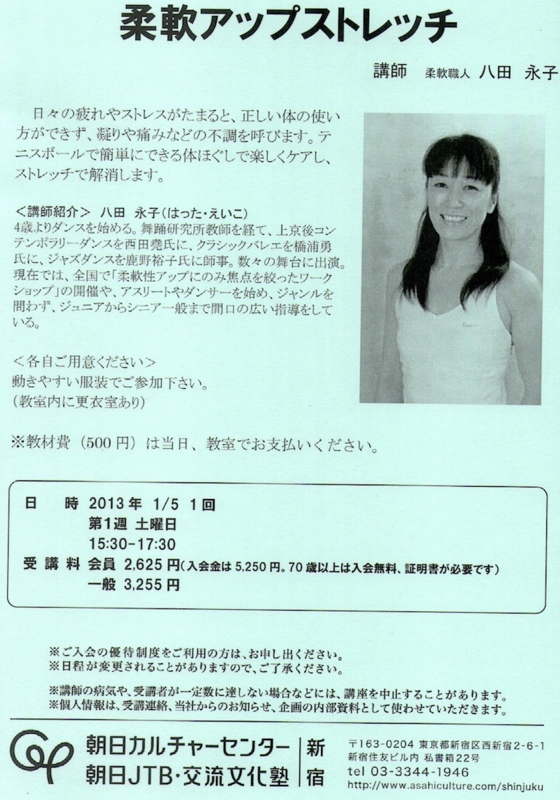 柔軟アップストレッチ
講師 柔軟職人 八田 永子
日々の疲れやストレスがたまると、正しい体の使い
方ができず、凝りや痛みなどの不調を呼びます。テ
ニスボールで簡単にできる体ほぐしで楽しくケアし、
ストレッチで解消します。
＜講師紹介＞ 八田 永子（はった・えいこ）
4歳よりダンスを始める。舞踊研究所教師を経て、上京後コン
テンポラリーダンスを西田堯氏に、クラシックバレエを橋浦勇
氏に、ジャズダンスを鹿野裕子氏に師事。数々の舞台に出演。
現在では、全国で「柔軟性アップにのみ焦点を絞ったワーク
ショップ」の開催や、アスリートやダンサーを始め、ジャンルを
問わず、ジュニアからシニア一般まで間口の広い指導をして
いる。
＜各自ご用意ください＞
動きやすい服装でご参加下さい。
（教室内に更衣室あり）
※教材費（500円）は当日、教室でお支払いください。
日 時 2013年 1/5 1回
第1週 土曜日
15:30-17:30
受講料 会員 2,625円（入会金は5,250円。70歳以上は入会無料、証明書が必要です）
一般 3,255円
※ご入会の優待制度をご利用の方は、お申し出ください。
※日程が変更されることがありますので、ご了承ください。
※講師の病気や、受講者が一定数に達しない場合などには、講座を中止することがあります。
※個人情報は、受講連絡、当社からのお知らせ、企画の内部資料として使わせていただきます。
朝日カルチャーセンター
朝日JTB・交流文化塾
新宿
〒163-0204 東京都新宿区西新宿2-6-1
新宿住友ビル内 私書箱22号
tel 03-3344-1946
http://www.asahiculture.com/shinjuku